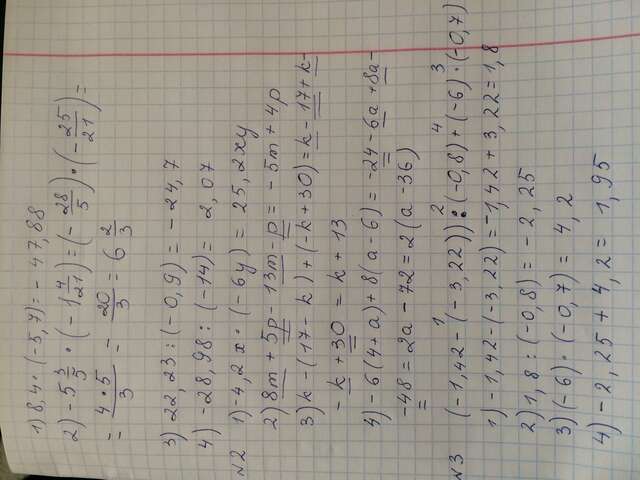 1) 8,4 · (-5,7) = - 47,88
2) -5 3/5 · (-1 4/21) = (- 28/5) · (- 25/21) =
= 4·5/3 = 20/3 = 6 2/3
3) 22,23 : (-0,9) = - 24,7
4) -28,98 : (-14) = 2,07
N2 1) -4,2x · (-6y) = 25,2xy
2) 8m + 5p - 13m - p = -5m + 4p
3) k - (17 - k) + (-k + 30) = k - 17 + k -
- k + 30 = k + 13
4) -6(4+a) + 8(a-6) = -24 - 6a + 8a -
-48 = 2a - 72 = 2(a - 36)
N3 (-1,42 - (-3,22)) : (-0,8) + (-6) · (-0,7)
1 2 4 3
1) -1,42 - (-3,22) = -1,42 + 3,22 = 1,8
2) 1,8 : (-0,8) = - 2,25
3) (-6) · (-0,7) = 4,2
4) - 2,25 + 4,2 = 1,95